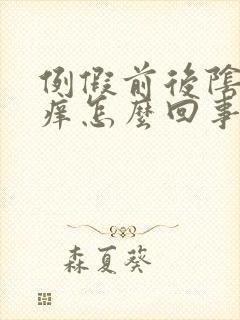 例假前後陰
痒怎麼回事
森夏葵